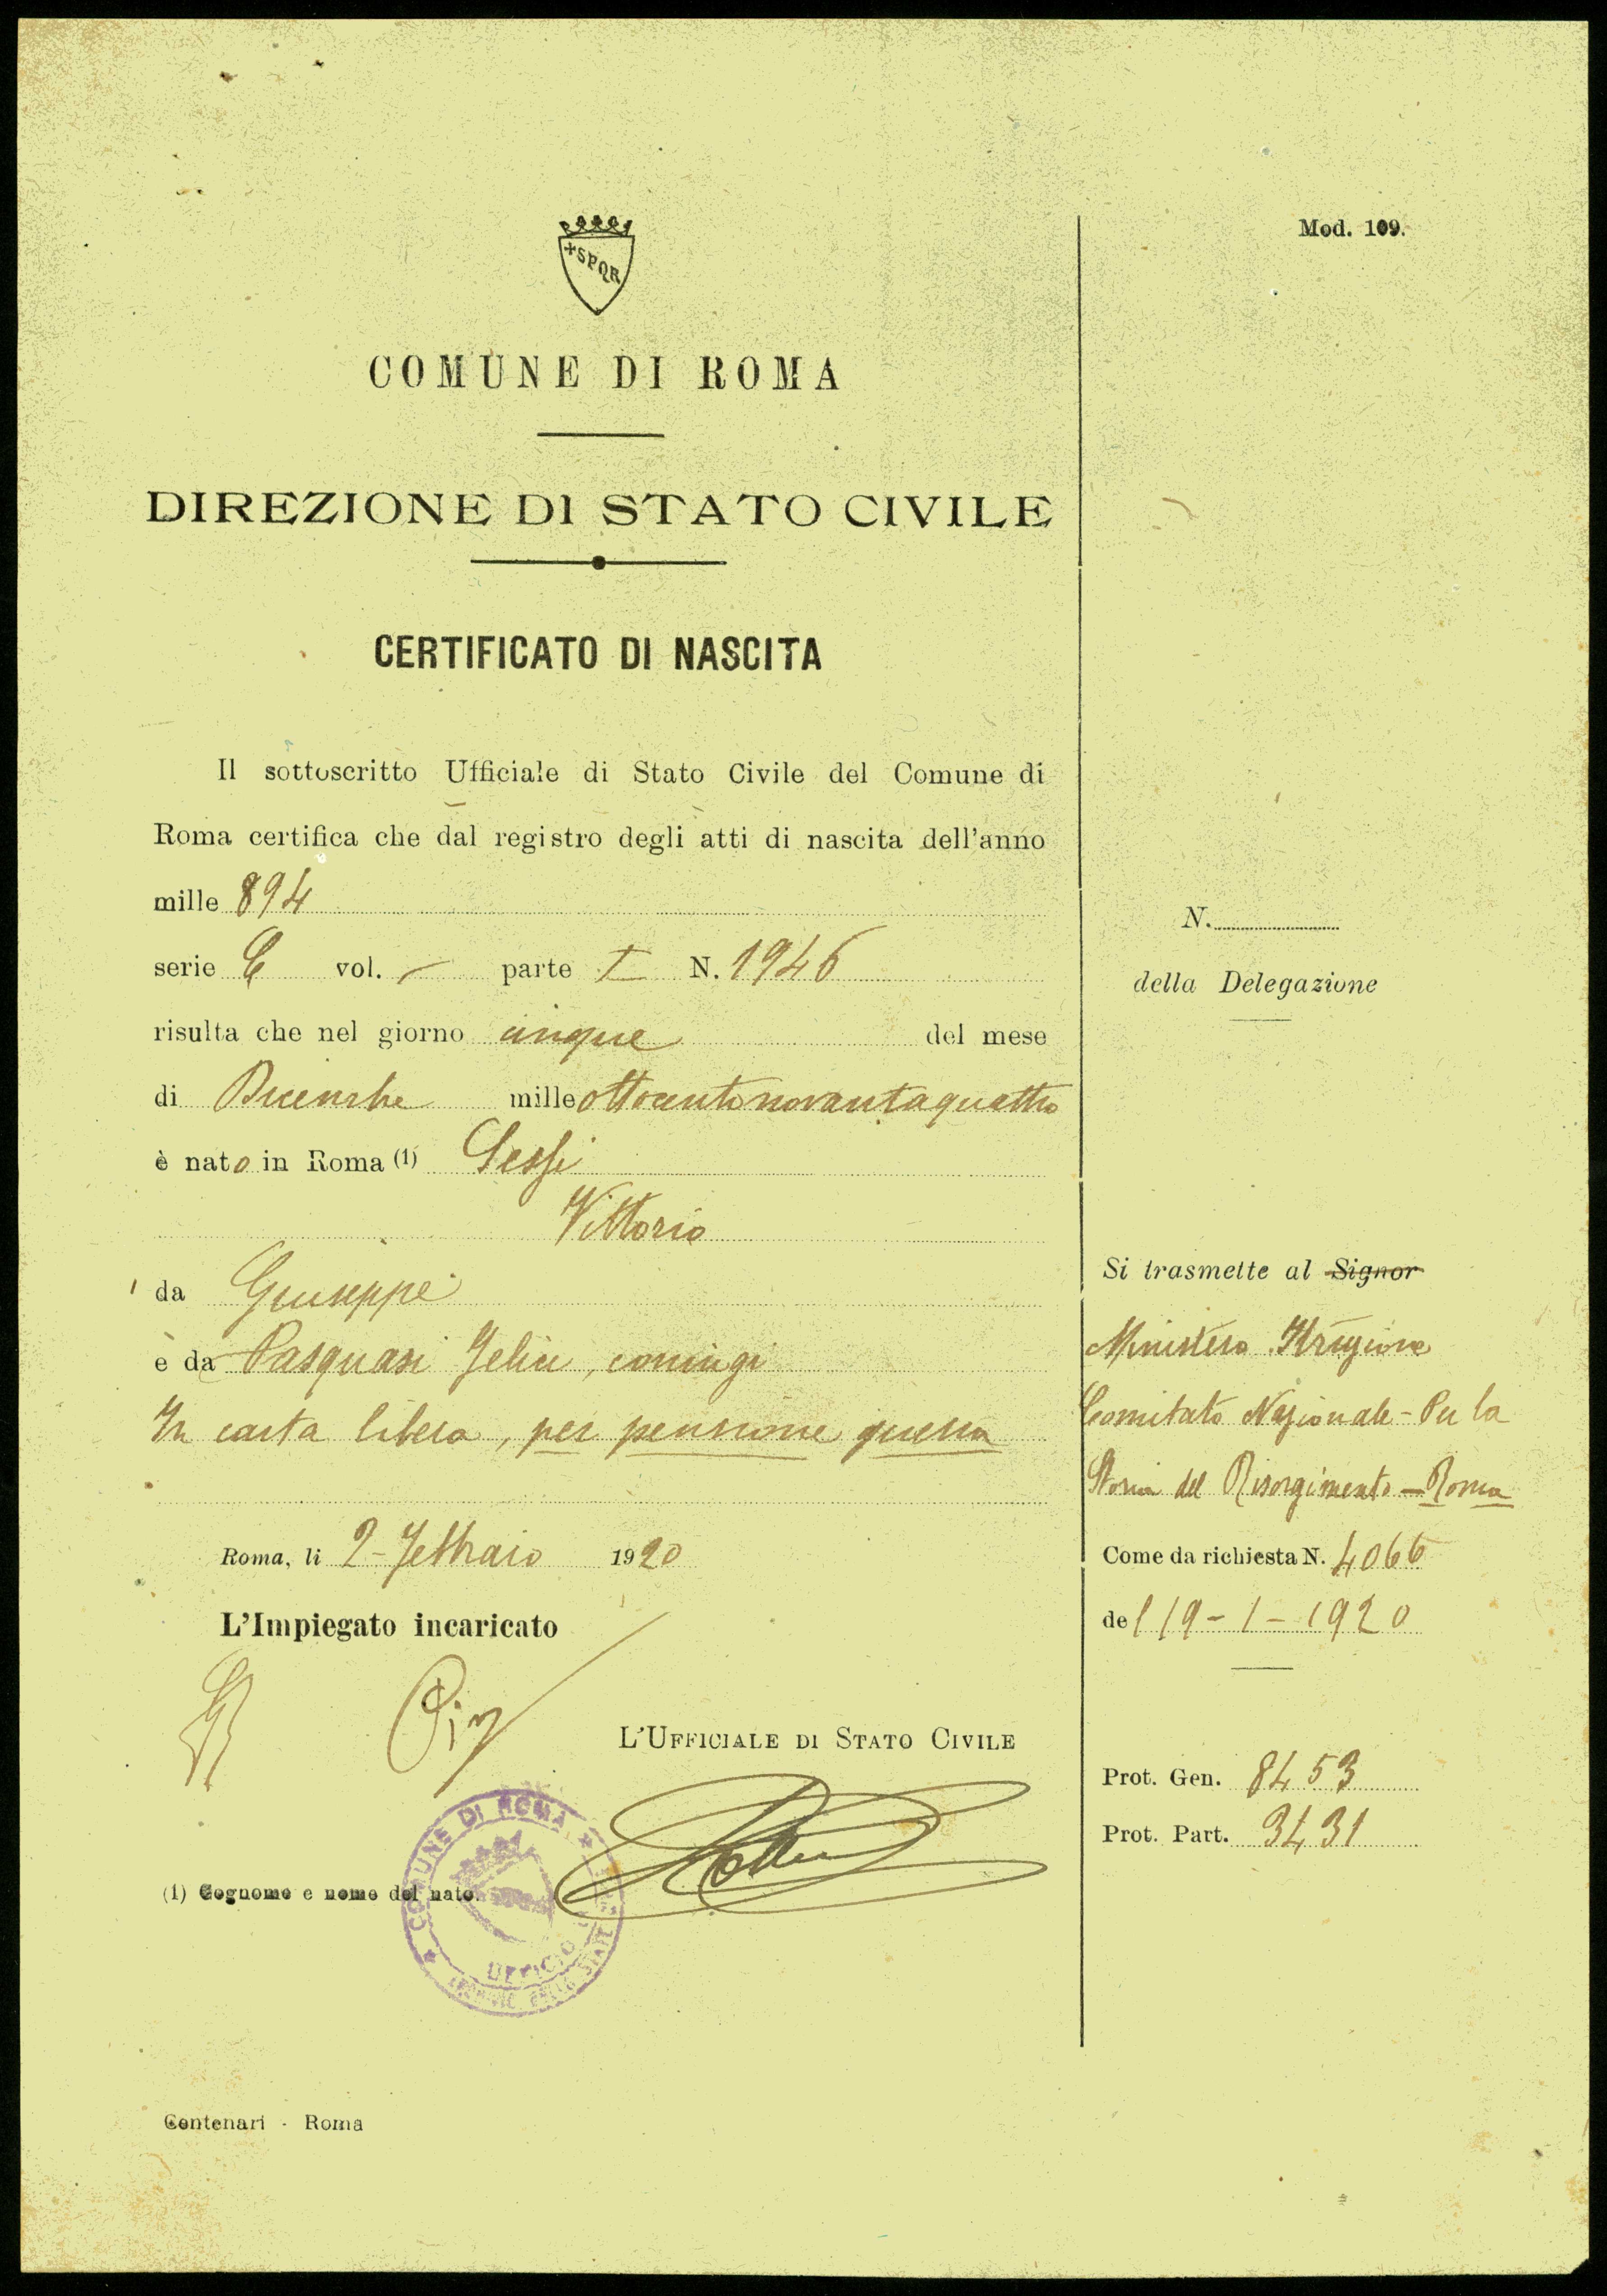 SPQR
COMUNE DI ROMA
DIREZIONE DI STATO CIVILE
CERTIFICATO DI NASCITA
Il sottoscritto Ufficiale di Stato Civile del Comune di
Roma certifica che dal registro degli atti di nascita dell'anno
mille 894
serie C vol. – parte I N. 1946
risulta che nel giorno cinque del mese
di Dicembre mille ottocentonovantaquattro
è nato in Roma (1)
Vittorio
da Giuseppe
e da Pasquasi Felice, coniugi
In carta libera, per pensione guerra
Roma, li 2 - Febbraio 1920
L'Impiegato incaricato
L'UFFICIALE DI STATO CIVILE
(1) Cognome e nome del nato.
COMUNE DI ROMA
UFFICIO
Centenari - Roma
Mod. 109.
N.
della Delegazione
Si trasmette al Signor
Ministero Istruzione
Comitato Nazionale - Per la
Storia del Risorgimento - Roma
Come da richiesta N. 4066
del 19 - 1 - 1920
Prot. Gen. 8453
Prot. Part. 3431